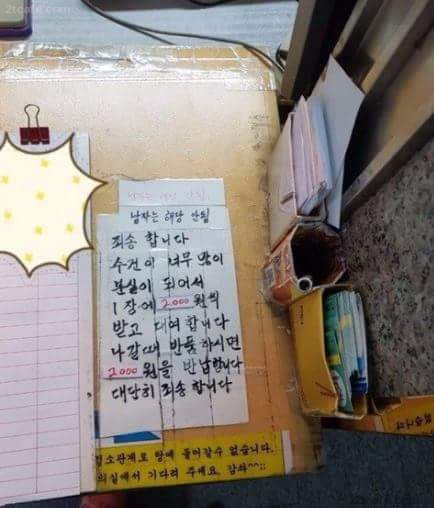 2tcafe.com
남자는 해당 안됨
남자는 해당 안됨
죄송 합니다
수건이 너무 많이
분실이 되어서
1장에 2.000 원씩
받고 대여 합니다
나갈때 반품 하시면
2000 원을 반납합니다
대단히 죄송 합니다
청소관계로 탕에 들어갈수 없습니다.
의실에서 기다려 주세요. 감솨^^;;